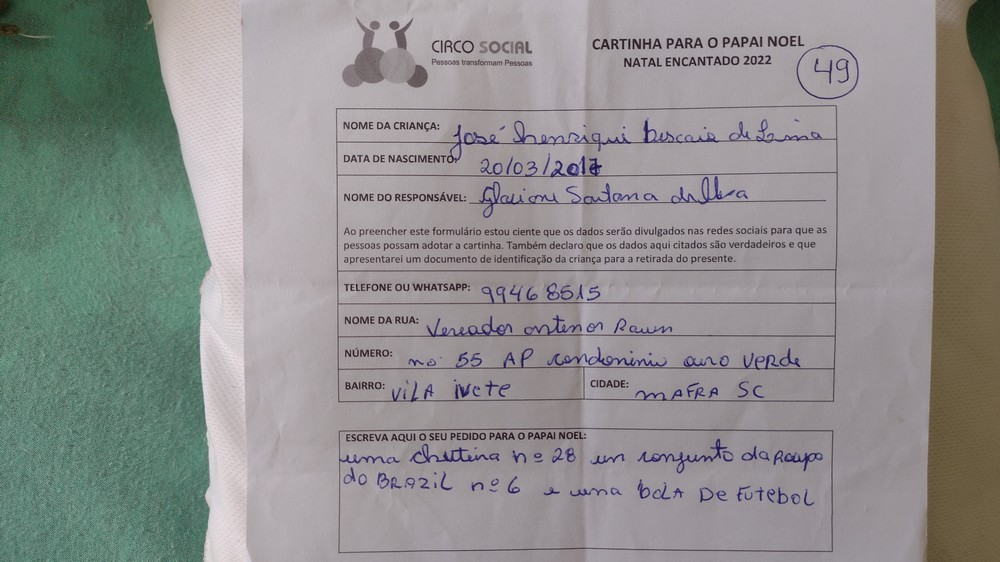 CIRCO SOCIAL
Pessoas transformam Pessoas
CARTINHA PARA O PAPAI NOEL
NATAL ENCANTADO 2022
49
NOME DA CRIANÇA: José henriqui de Lima
DATA DE NASCIMENTO: 20/03/2017
NOME DO RESPONSÁVEL: Santana
Ao preencher este formulário estou ciente que os dados serão divulgados nas redes sociais para que as
pessoas possam adotar a cartinha. Também declaro que os dados aqui citados são verdadeiros e que
apresentarei um documento de identificação da criança para a retirada do presente.
TELEFONE OU WHATSAPP: 99468515
NOME DA RUA: Vereador antenor
NÚMERO: no 55 AP condominiu ouro VERde
BAIRRO: VILA ivete CIDADE: MAFRA SC
ESCREVA AQUI O SEU PEDIDO PARA O PAPAI NOEL:
uma chuteira nº 28 um conjunto da Roupa
do BRAZIL nº 6 e uma bolA De Futebol